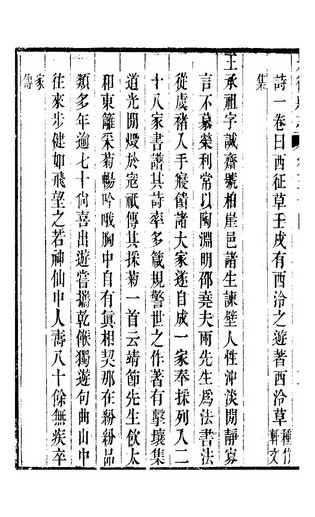 詩一卷曰西征草壬戌有西泠之遊著西泠草種竹軒文
集
王承祖字誠齋號柏崖邑諸生諫壁人性沖淡閒靜寡
言不慕榮利常以陶淵明邵堯夫兩先生爲法書法
從虞褚入手寢饋諸大家遂自成一家奉採列入二
十八家書譜其詩率多箴規警世之作著有擊壤集
道光間燬於寇祇傳其採菊一首云靖節先生飲太
和東籬采菊暢吟哦胸中自有眞相契那在紛紛品
類多年逾七十尙喜出遊嘗攜乾餱獨遊句曲山中
往來步健如飛望之若神仙中人壽八十餘無疾卒
家
傳